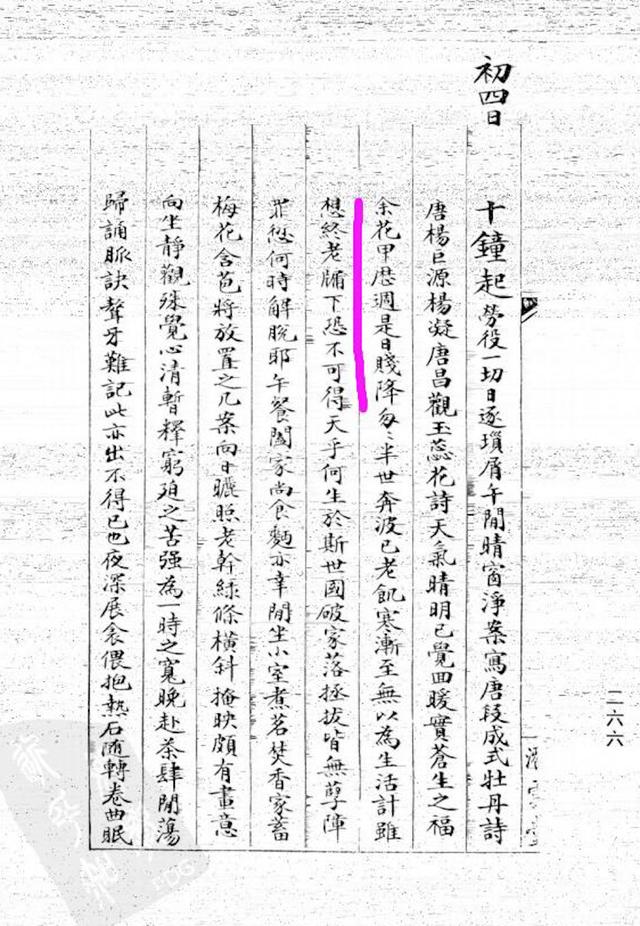 初四日
十鐘起勞役一切日逐瑣屑午閒晴窗淨案寫唐段成式牡丹詩
唐楊巨源楊凝唐昌觀玉蕊花詩天氣晴明已覺回暖實蒼生之福
余花甲歷週是日賤降匆〻半世奔波已老飢寒漸至無以為生活計雖
想終老牖下恐不可得天乎何生於斯世國破家落拯拔皆無孽障
罪愆何時解脫耶午餐闔家尚食麵亦幸閒坐小室煮茗焚香家畜
梅花含苞將放置之几案向日曬照老幹綠條橫斜掩映頗有畫意
向坐靜觀殊覺心清暫釋窮迫之苦强為一時之寬晚赴茶肆閒蕩
歸誦脈訣聱牙難記此亦出不得已也夜深展衾偎抱熱石隨轉卷曲眠
二六六